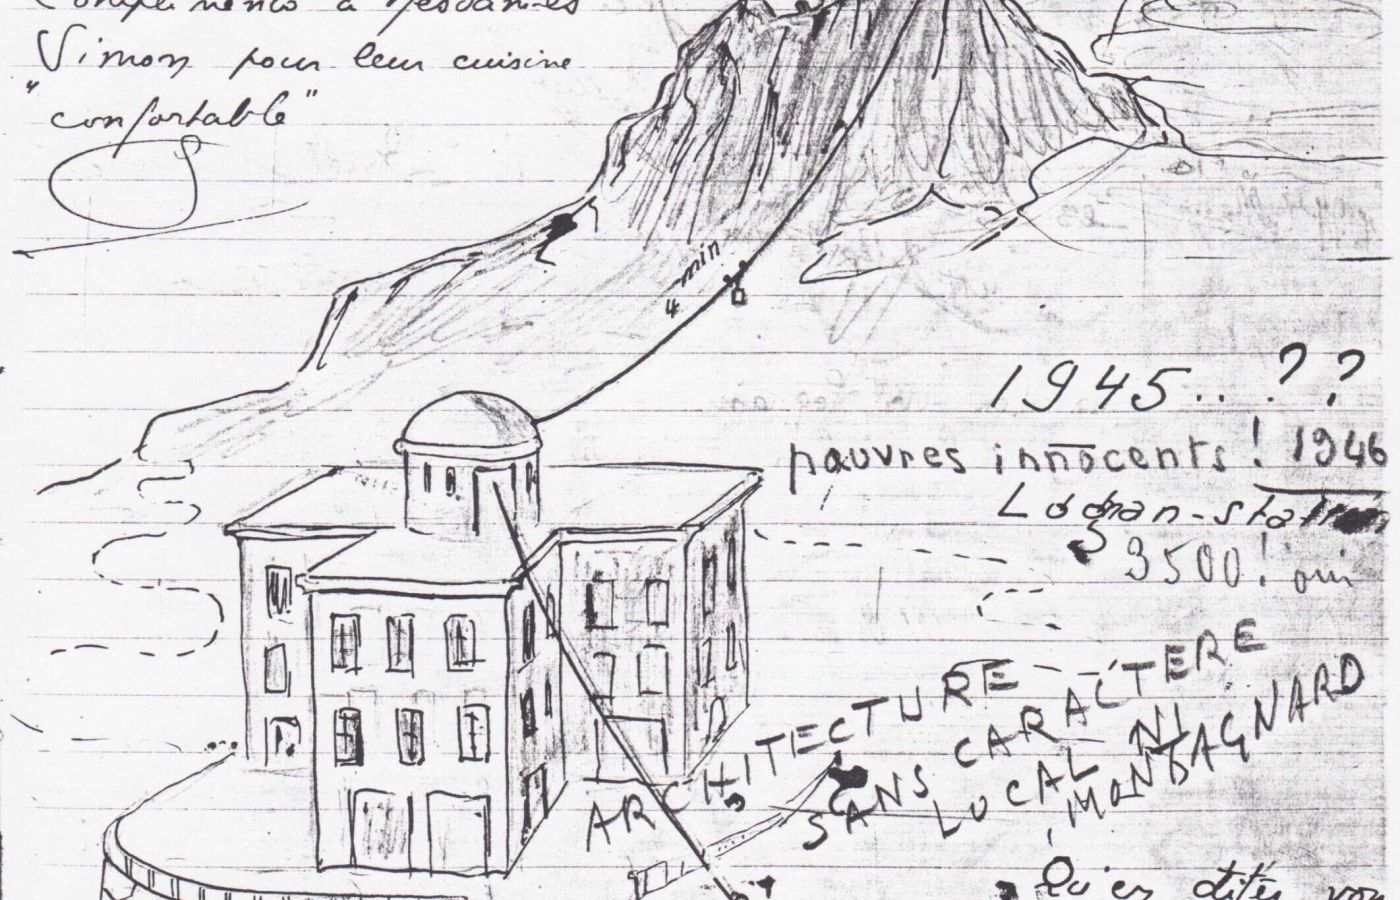 Compliments à Mesdames
Simon pour leur cuisine
"confortable"
4 min
1945..??
pauvres innocents! 1946
Logan-station
3500! oui
ARCHITECTURE
SANS CARACTERE
LOCAL NI
MONTAGNARD
Qu'en dites vous